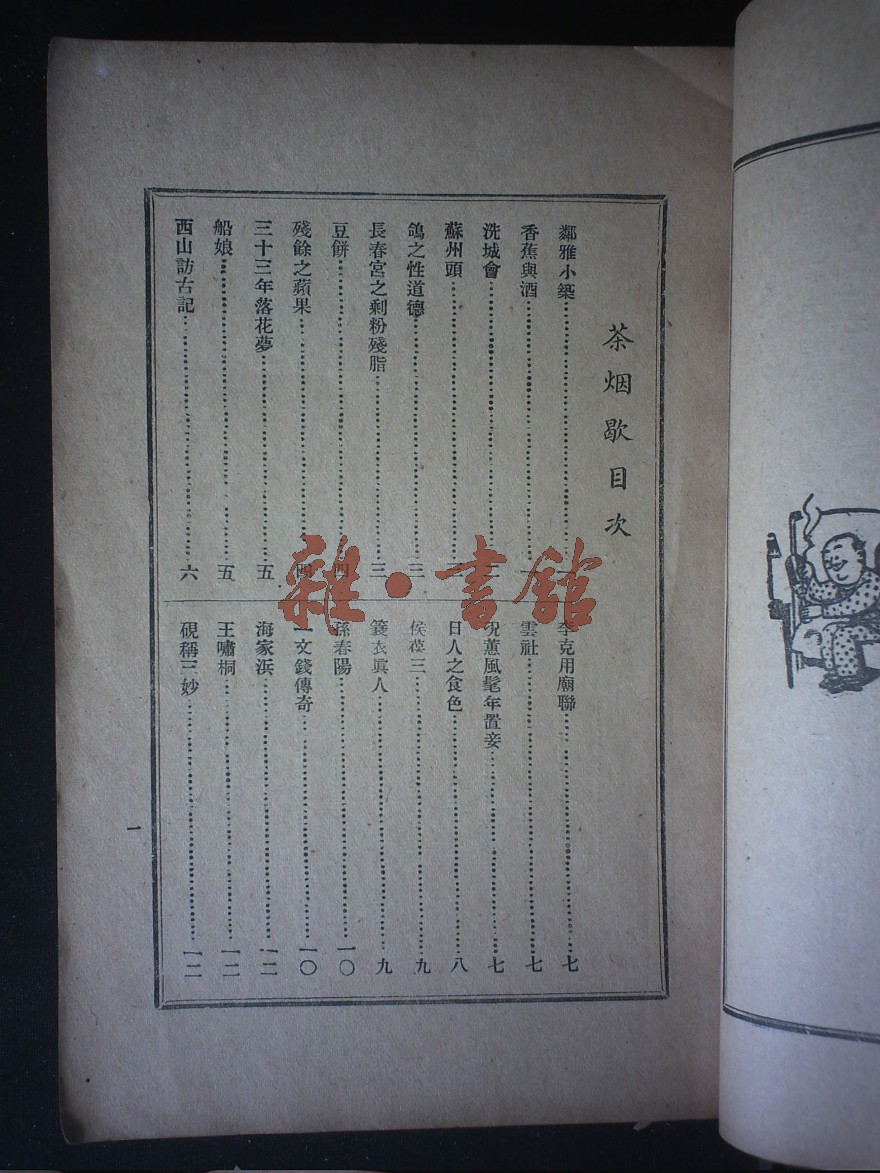 茶烟歇目次
鄰雅小築……一
香蕉與酒……一
洗城會……二
蘇州頭……二
鴿之性道德……三
長春宮之剩粉殘脂……三
豆餅……四
殘餘之蘋果……四
三十三年落花夢……五
船娘……五
西山訪古記……六
李克用廟聯……七
雲社……七
況蕙風髦年置妾……七
日人之食色……八
侯葆三……九
簑衣眞人……九
孫春陽……一〇
一文錢傳奇……一〇
海家浜……一二
王嘯桐……一二
硯稱三妙……一二
一
雜·書館